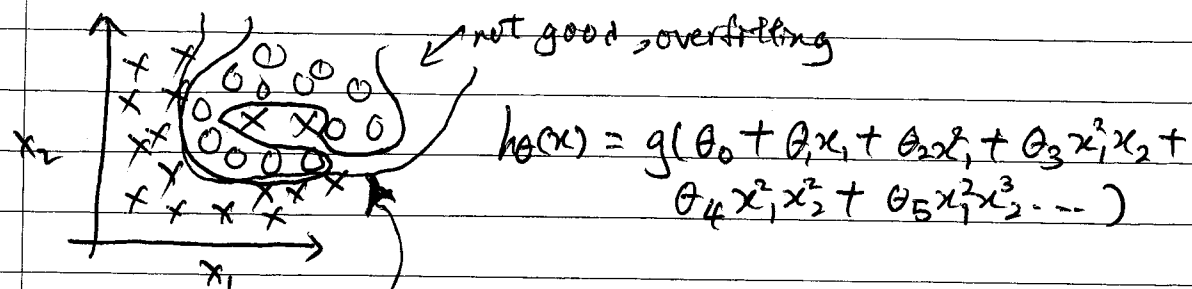 not good, overfitting
x₂
hθ(x) = g(θ₀ + θ₁x₁ + θ₂x₁² + θ₃x₁²x₂ +
θ₄x₁²x₂² + θ₅x₁²x₂³ ....)
x₁